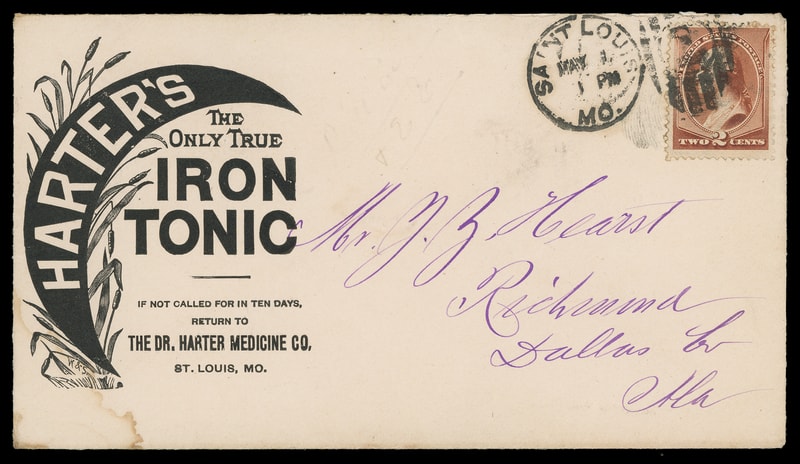 HARTER'S
THE
ONLY TRUE
IRON
TONIC
IF NOT CALLED FOR IN TEN DAYS,
RETURN TO
THE DR. HARTER MEDICINE CO,
ST. LOUIS, MO.
SAINT LOUIS
MAY 1
1 PM
MO.
TWO 2 CENTS
Mr. J. Z. Hearst
Richmond
Dallas Co
Ala